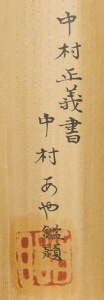 中村正義書
中村あや鑑題